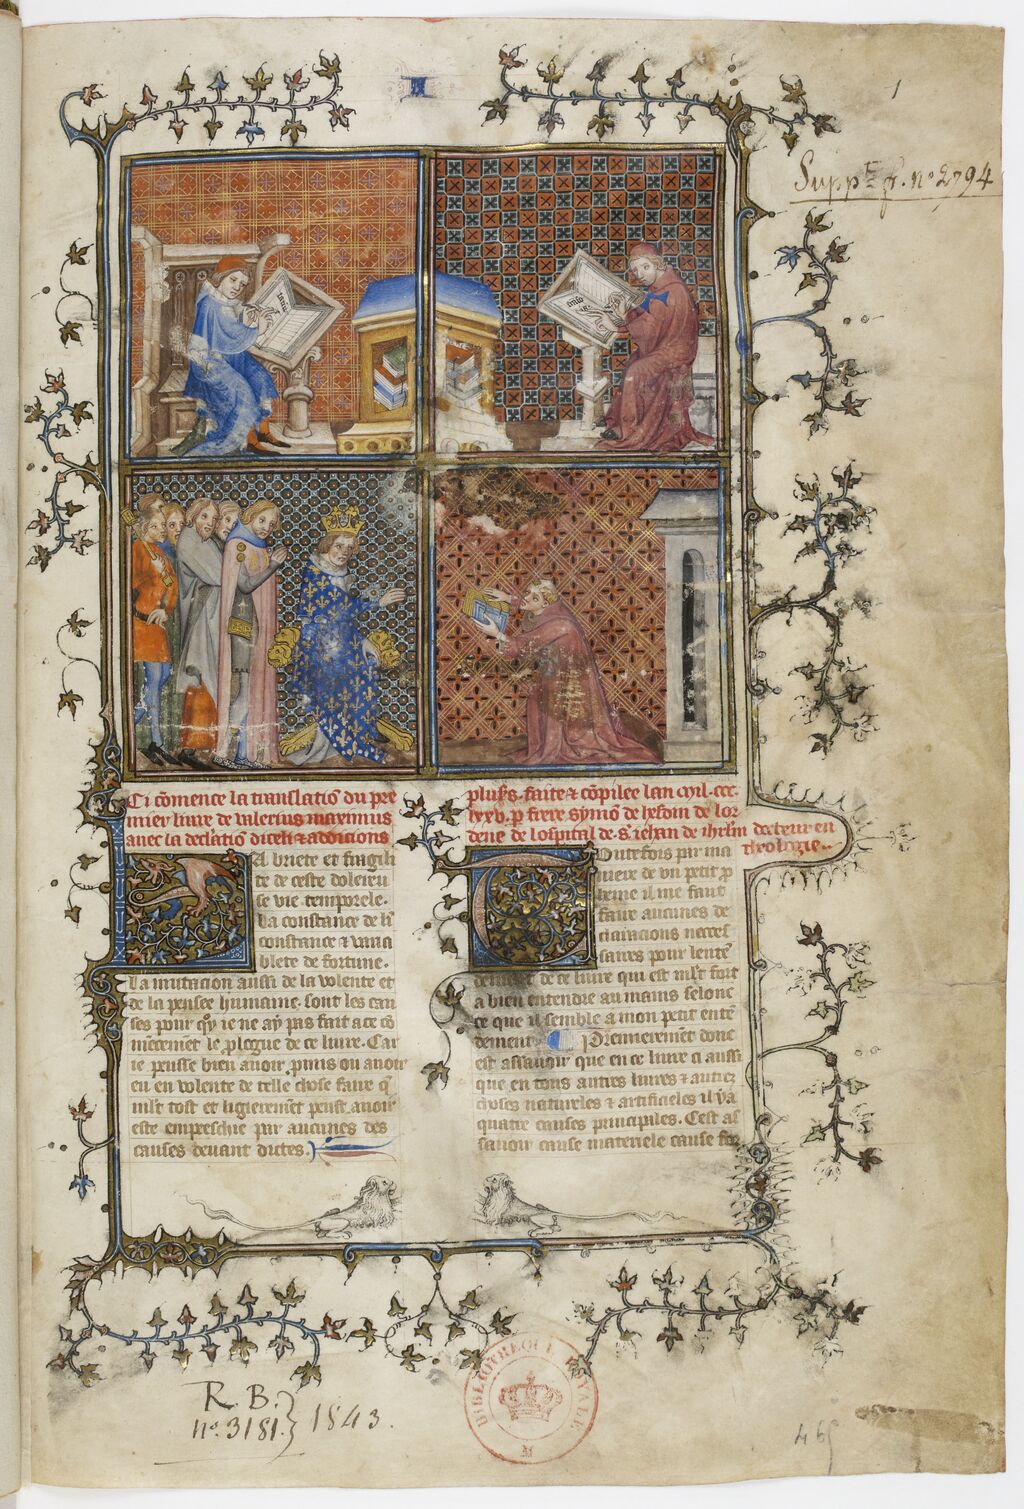 1
Supp.t fr. no 2794
Ci cōmence la translatiō du pre
mier liure de valerius maximus
auec la declatiō diceli & addicions
plus.rs faite & cōpilee lan mil.ccc.
lxxv. p frere symō de hesdin de lor
dene de lospital de .s. iehan de ihrlm docteur en
theologie..
La briete et fragili
te de ceste dolereu
se vie temporele.
La constance de li
constance & varia
blete de fortune.
La mutacion aussi de la volente et
de la pensee humaine. sont les cau
ses pour quoy ie ne ay pas fait a ce cō
mēcement le plogue de ce liure. Car
ie peusse bien auoir pmis ou auoir
eu en volente de telle chose faire q
mlt tost et ligierement peust auoir
este empeschie par aucunes des
causes deuant dictes.
Toutefois par ma
niere de vn petit p
heme il me faut
faire aucunes de
clairacions neces
saires pour lente
dement de ce liure qui est mlt fort
a bien entendre au mains selonc
ce que il semble a mon petit entē
dement. Premieremēt donc
est assauoir que en ce liure ci aussi
que en tous autres liures & autres
choses natureles & artificieles il y a
quatre causes principales. Cest as
sauoir cause materiele cause for
R. B.
no. 3181. } 1843.
BIBLIOTHEQUE ROYALE
465